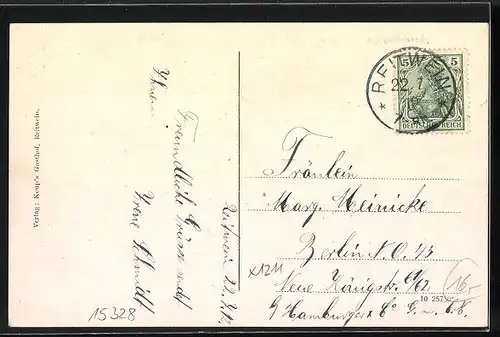 Verlag: Kemp's Gasthof, Reitwein.
Ihnen
Freundliche Grüsse
Irene Schmidt
Reitwein 22.7.12.
REITWEIN
22.7.
DEUTSCHES REICH
5 5
Fräulein
Marg. Meinicke
Berlin N.O. 43
Neue Königstr. 61/62
Hamburger & Co G. m. b. H.
x1211
16,-
10 25750
15328